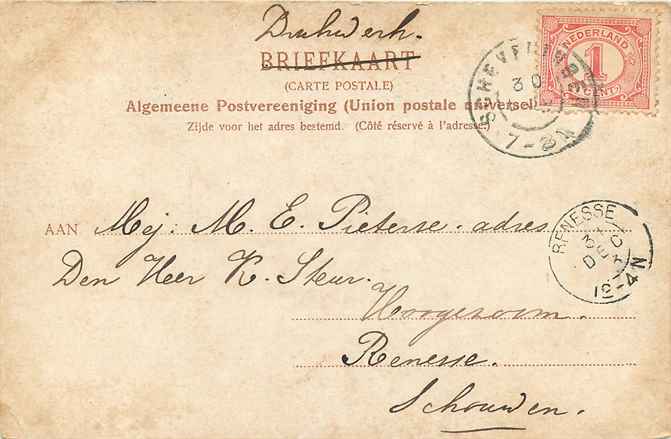 Drukwerk.
BRIEFKAART
(CARTE POSTALE)
Algemeene Postvereeniging (Union postale universelle)
Zijde voor het adres bestemd. (Côté réservé à l'adresse.)
NEDERLAND
1
CENT
30
7-8N
RENESSE
31
DEC
12-4N
AAN Mej: M. E. Pieterse. adres
Den Heer K. Steur.
Hoogezoom.
Renesse.
Schouwen.